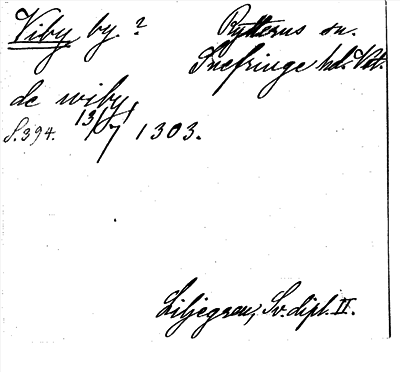 Viby by. ? Rytterns sn.
Snefringe hd. Vstm.
de wiby,
S. 394. 13/7 1303.
Liljegren, Sv. dipl. II.